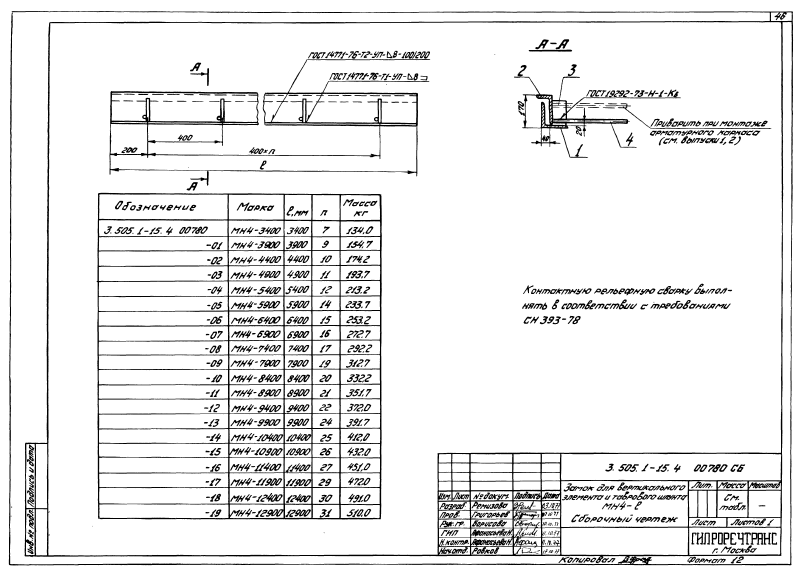 46
А-А
А
ГОСТ 14771-76-Т2-УП-△8-100/200
ГОСТ 14771-76-Т1-УП-△8-⊐
2
3
ГОСТ 19292-73-Н-1-Кв
170
Приварить при монтаже
арматурного каркаса
(см. выпуски 1, 2)
20
40
1
4
400
200
400×п
ℓ
А
Обозначение Марка ℓ, мм п Масса кг
3.505.1-15.4 00780 МН4-3400 3400 7 134,0
-01 МН4-3900 3900 9 154,7
-02 МН4-4400 4400 10 174,2
-03 МН4-4900 4900 11 193,7
-04 МН4-5400 5400 12 213,2
-05 МН4-5900 5900 14 233,7
-06 МН4-6400 6400 15 253,2
-07 МН4-6900 6900 16 272,7
-08 МН4-7400 7400 17 292,2
-09 МН4-7900 7900 19 312,7
-10 МН4-8400 8400 20 332,2
-11 МН4-8900 8900 21 351,7
-12 МН4-9400 9400 22 372,0
-13 МН4-9900 9900 24 391,7
-14 МН4-10400 10400 25 412,0
-15 МН4-10900 10900 26 432,0
-16 МН4-11400 11400 27 451,0
-17 МН4-11900 11900 29 472,0
-18 МН4-12400 12400 30 491,0
-19 МН4-12900 12900 31 510,0
Контактную рельефную сварку выпол-
нять в соответствии с требованиями
СН 393-78
Инв. № подл. Подпись и дата
3.505.1-15.4 00780 СБ
Изм. Лист № докум. Подпись Дата
Разраб Ремизова
Пров. Григорьев
Рук. гр. Борисова
ГИП Афанасьева Н.
Н. контр. Афанасьева Н.
Нач. отд Робков
Замок для вертикального
элемента и таврового шпунта
МН4-2
Сборочный чертеж
Лит. Масса Масштаб
См. табл. —
Лист Листов 1
ГИПРОРЕЧТРАНС
г. Москва
Копировал
Формат 12